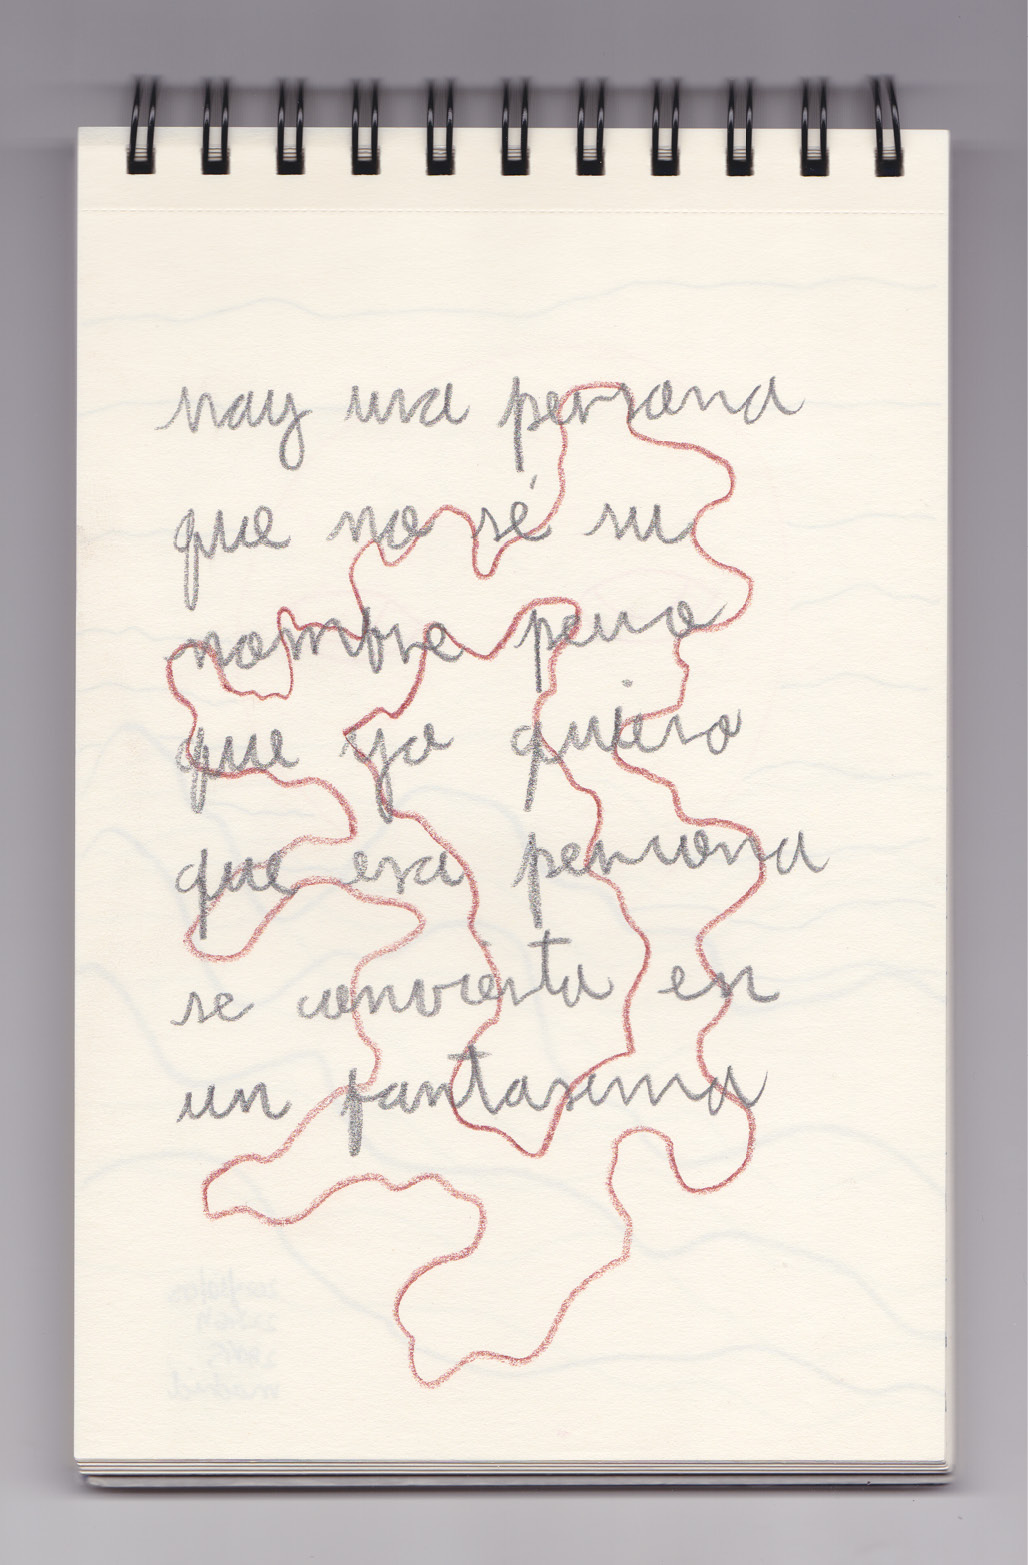 hay una persona
que no sé su
nombre pero
que yo quiero
que esa persona
se convierta en
un fantasma
madrid